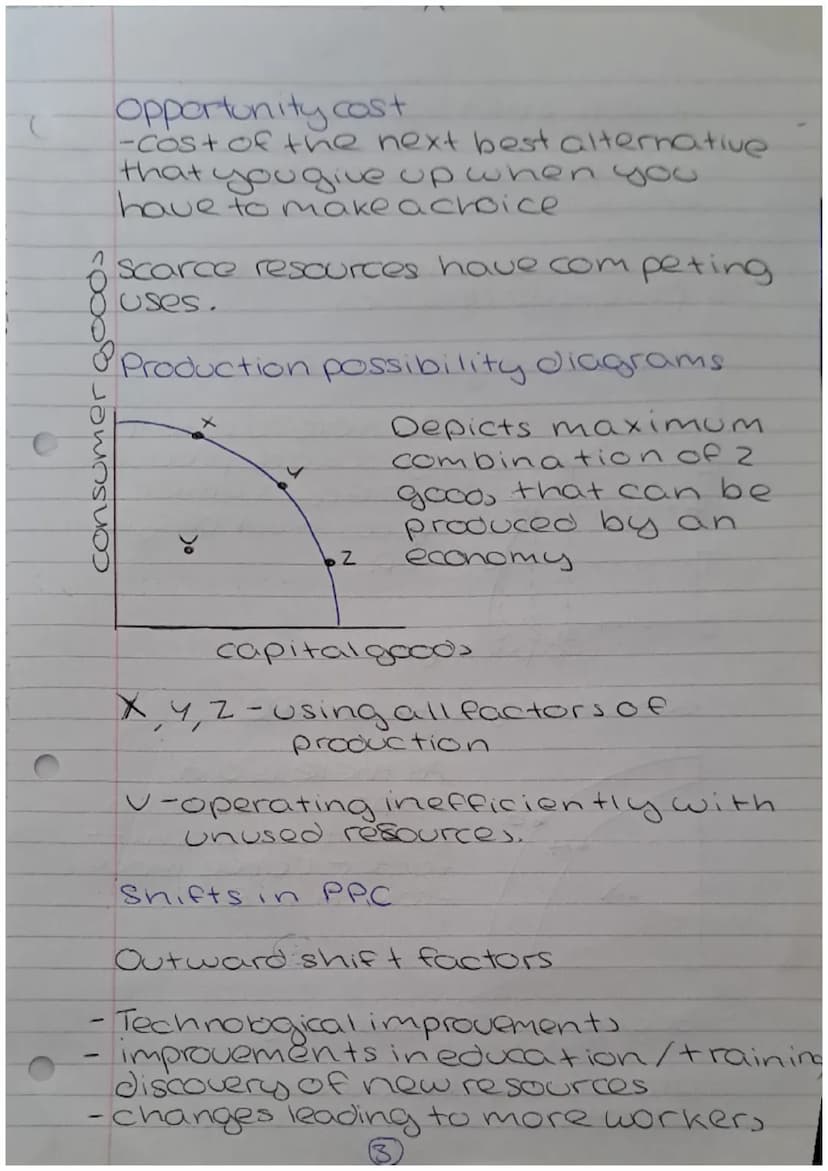 Opportunity cost
-cost of the next best alternative
that you give up when you
have to make a choice
Scarce resources have competing
uses.
Production possibility diagrams
consumer goods
X
Y
Z
V
Depicts maximum
combination of 2
goods that can be
produced by an
economy
capital goods
X, Y, Z - using all factors of
production
V - operating inefficiently with
unused resources.
Shifts in PPC
Outward shift factors
- Technological improvements
- improvements in education/training
discovery of new resources
- changes leading to more workers
3